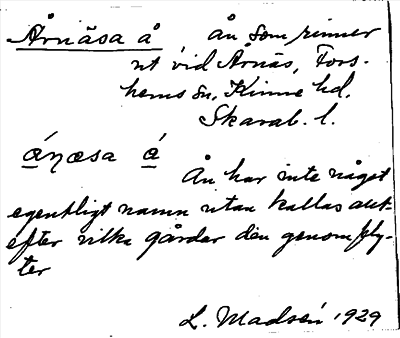 Årnäsa å ån som rinner
ut vid Årnäs, Fors-
hems sn, Kinne hd.
Skarab. l.
áṇæsa á
Ån har inte något
egentligt namn utan kallas allt-
efter vilka gårdar den genomfly-
ter
L. Madsén 1929